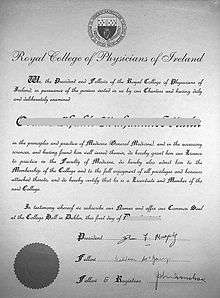 Royal College of Physicians of Ireland
We the President and Fellows of the Royal College of Physicians of
Ireland, in pursuance of the powers vested in us by
our Charters and having duly
and deliberately examined
in the principles and practice of Medicine (General Medicine) and in the accessory
sciences, and having found him well versed therein, do hereby grant him our Licence
to practise in the Faculty of Medicine, do hereby also admit him to the
Membership of the College and to the full enjoyment of all privileges and honours
attached thereto, and do hereby certify that he is a Licentiate and Member of the
said College.
In testimony whereof we subscribe our Names and affix our Common Seal
at the College Hall in Dublin, this first day of
President
Fellow
Fellow & Registrar